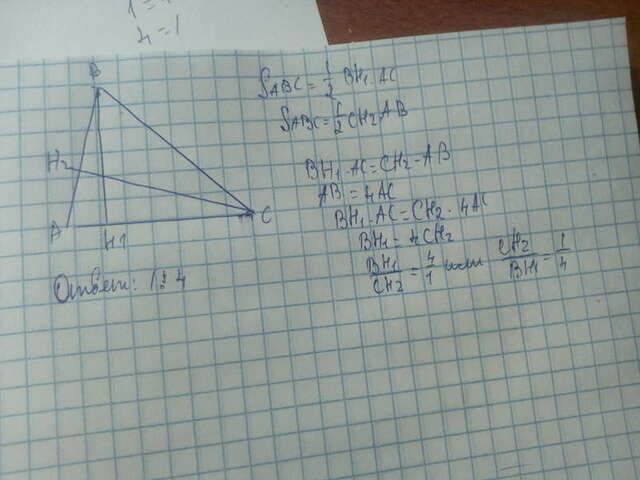 1=
4=1
B
H2
A
H1
C
Ответ: 1:4
SABC = 1/2 BH1·AC
SABC = 1/2 CH2 AB
BH1·AC = CH2·AB
AB = 4AC
BH1·AC = CH2·4AC
BH1 = 4CH2
BH1/CH2 = 4/1 или CH2/BH1 = 1/4